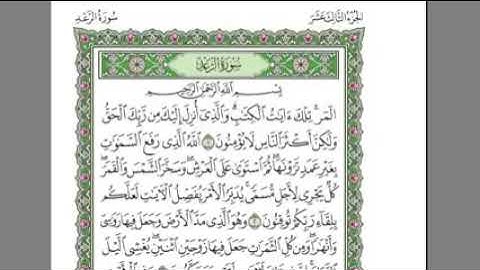 سُورَةُ الرَّعْدِ
الجُزْءُ الثَّالِثَ عَشَرَ
سُورَةُ الرَّعْدِ
بِسْمِ ٱللَّهِ ٱلرَّحْمَٰنِ ٱلرَّحِيمِ
الٓمٓر ۚ تِلْكَ ءَايَٰتُ ٱلْكِتَٰبِ ۗ وَٱلَّذِىٓ أُنزِلَ إِلَيْكَ مِن رَّبِّكَ ٱلْحَقُّ
وَلَٰكِنَّ أَكْثَرَ ٱلنَّاسِ لَا يُؤْمِنُونَ ١ ٱللَّهُ ٱلَّذِى رَفَعَ ٱلسَّمَٰوَٰتِ
بِغَيْرِ عَمَدٍ تَرَوْنَهَا ۖ ثُمَّ ٱسْتَوَىٰ عَلَى ٱلْعَرْشِ ۖ وَسَخَّرَ ٱلشَّمْسَ وَٱلْقَمَرَ ۖ
كُلٌّ يَجْرِى لِأَجَلٍ مُّسَمًّى ۚ يُدَبِّرُ ٱلْأَمْرَ يُفَصِّلُ ٱلْءَايَٰتِ لَعَلَّكُم
بِلِقَآءِ رَبِّكُمْ تُوقِنُونَ ٢ وَهُوَ ٱلَّذِى مَدَّ ٱلْأَرْضَ وَجَعَلَ فِيهَا رَوَٰسِىَ
وَأَنْهَٰرًا ۖ وَمِن كُلِّ ٱلثَّمَرَٰتِ جَعَلَ فِيهَا زَوْجَيْنِ ٱثْنَيْنِ ۖ يُغْشِى ٱلَّيْلَ